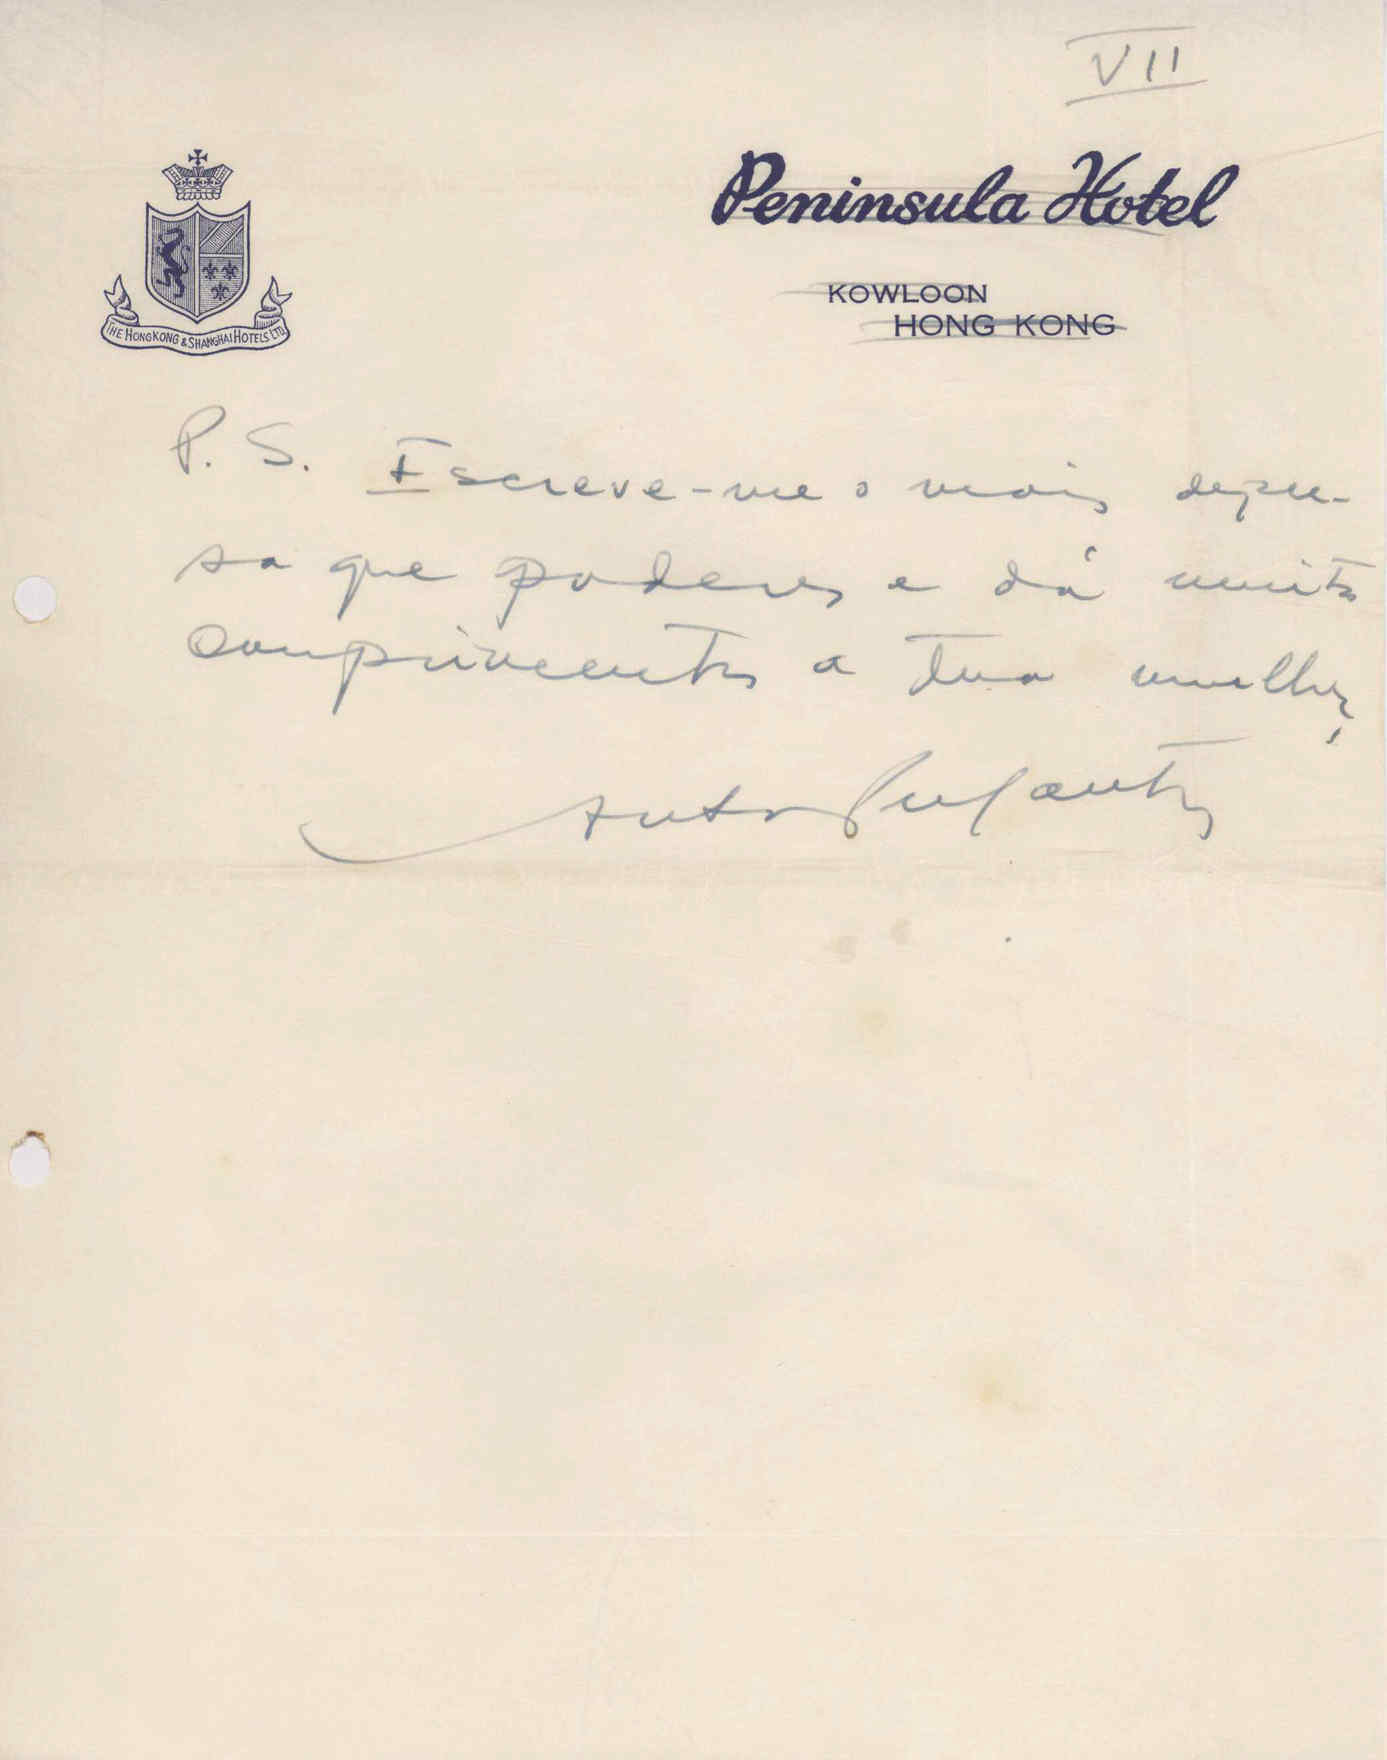 VII
Peninsula Hotel
KOWLOON
HONG KONG
THE HONGKONG & SHANGHAI HOTELS LTD
P. S. Escreve-me o mais depre-
sa que poderes e dá muitos
comprimentos a tua mulher,